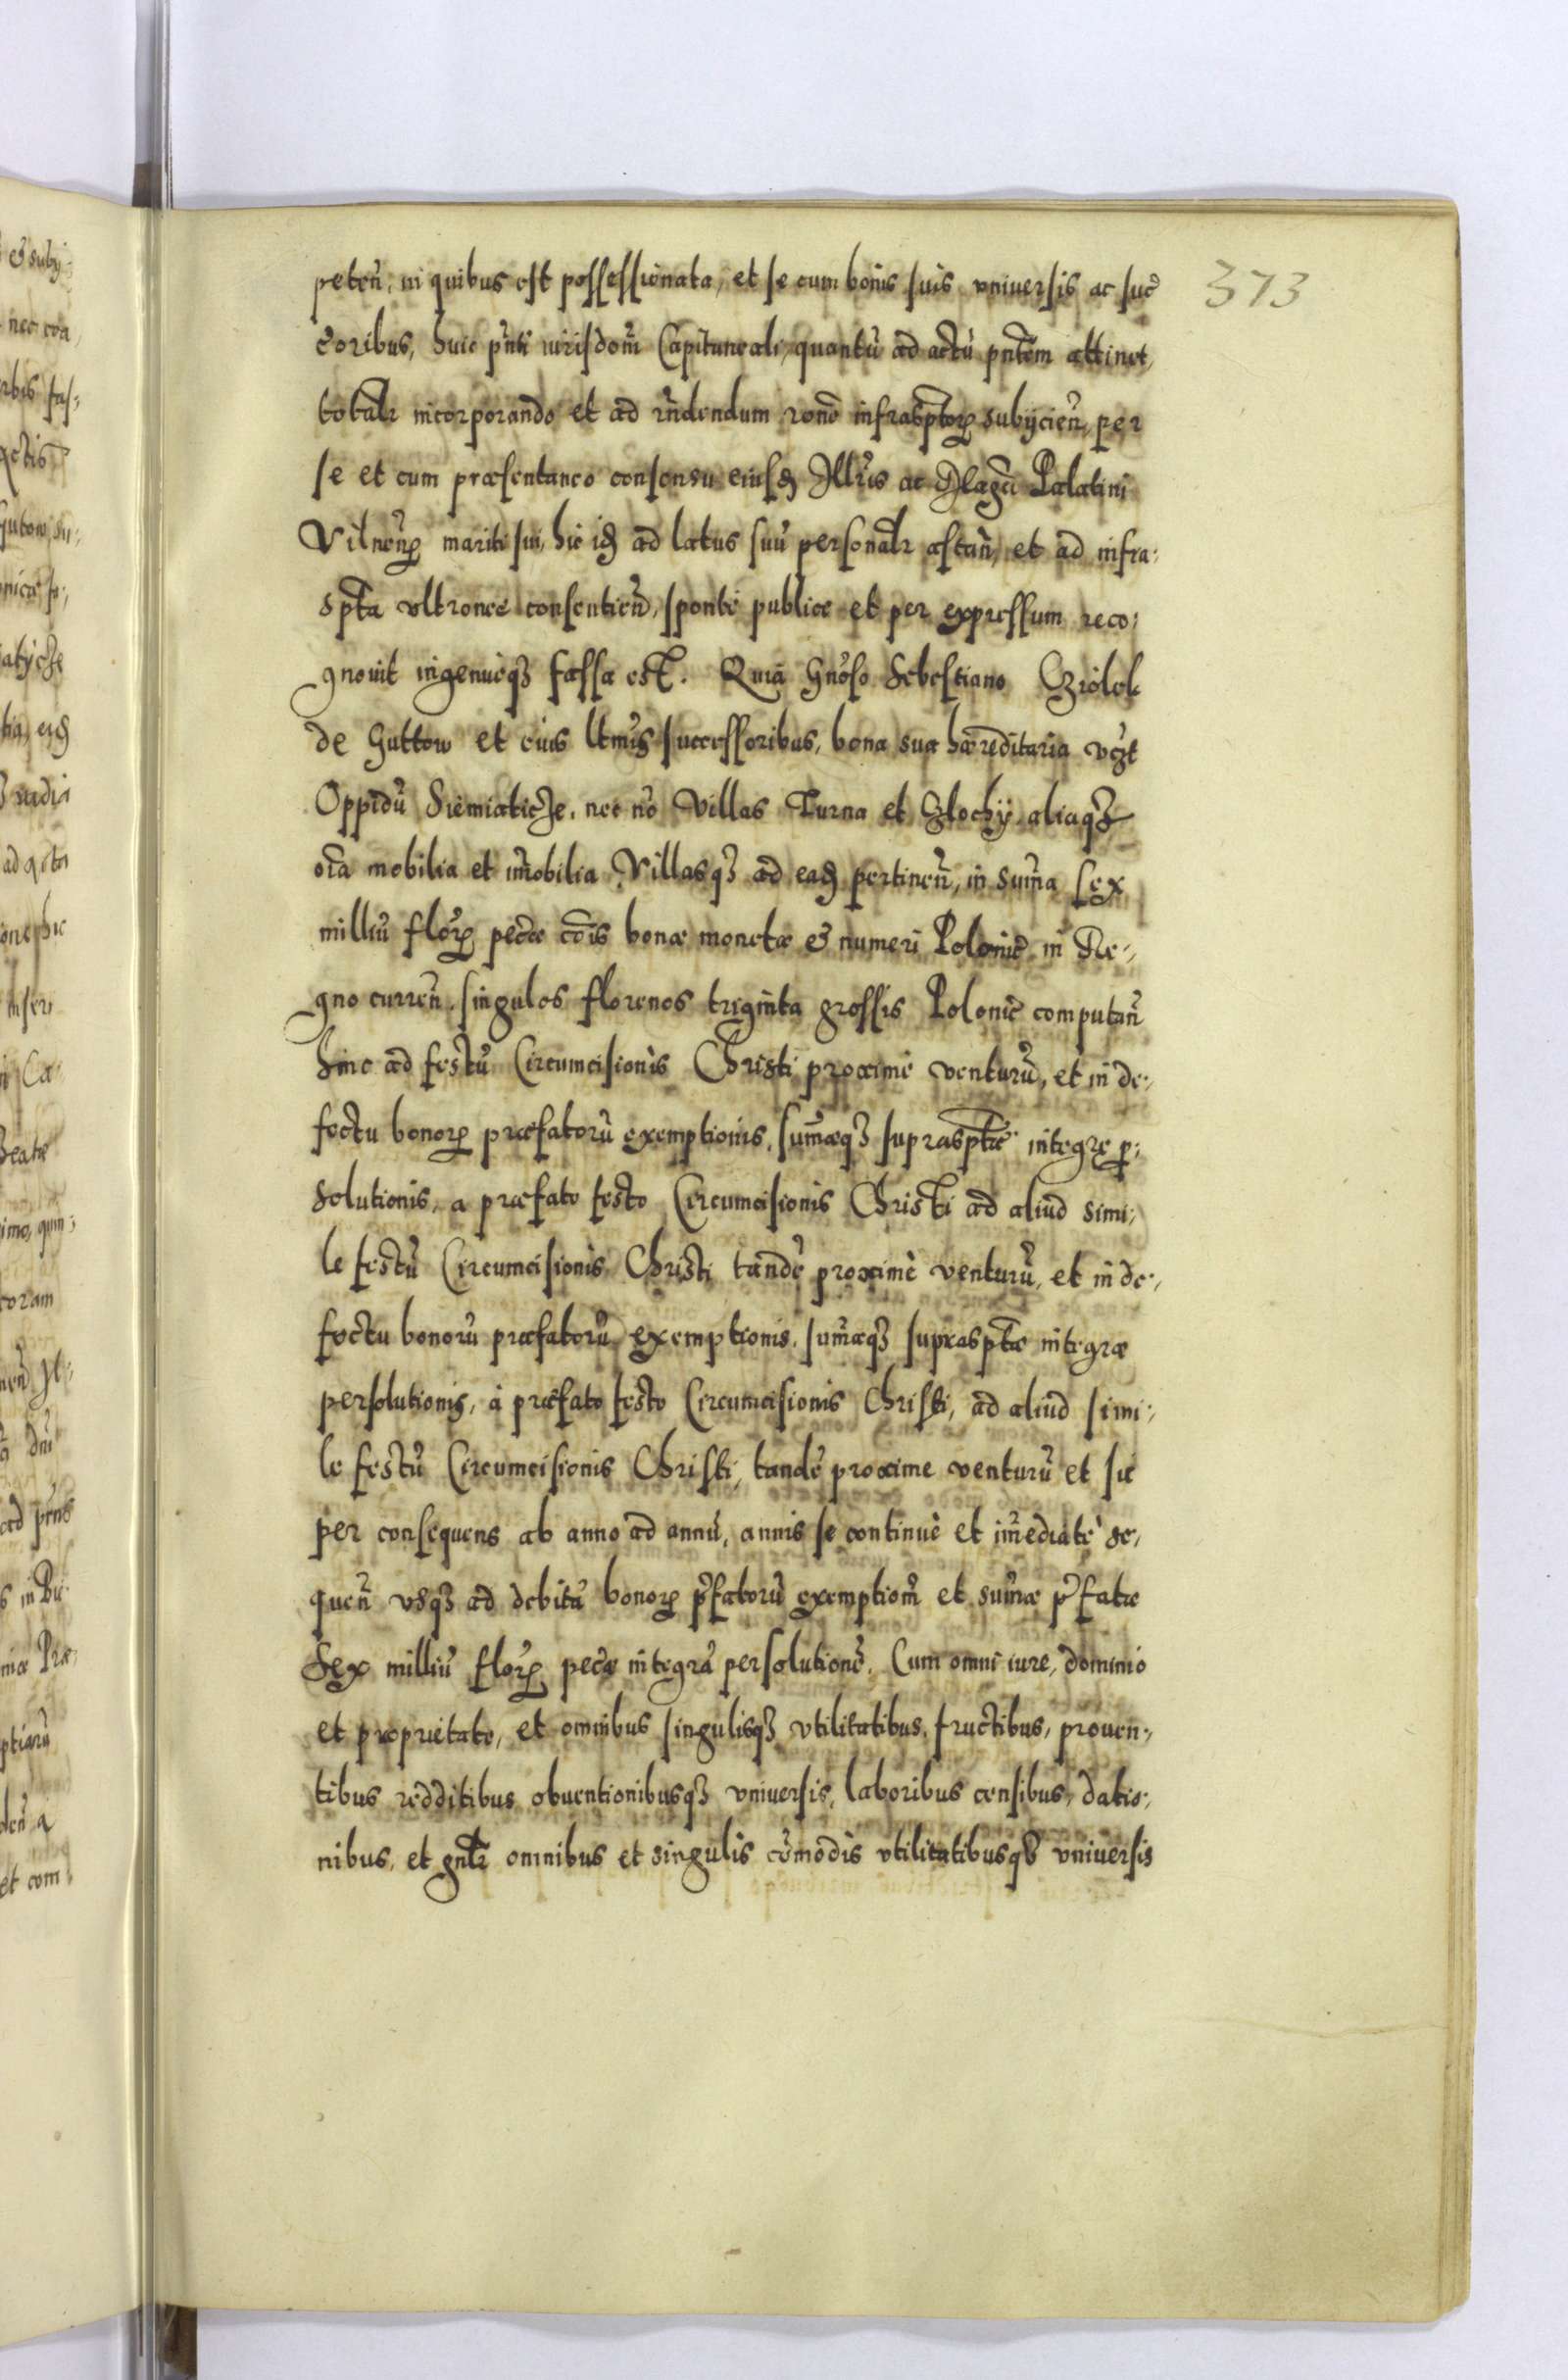 373
peteñ, in quibus est possessionata, et se cum bonis suis vniuersis ac suc̃
c̃oribus, huic pñti iurisdom̃ Capituneali, quantũ ad actũ pñtem attinet,
totalr̃ incorporando et ad rñdendum rone infrasptorꝝ subijcieñ, per
se et cum præsentaneo consensu eiusd̃ Illris ac Magci Palatini
Vilneñ mariti sui, hic id̃ ad latus suũ personalr̃ astañ, et ad infra:
spta vltronee consentieñ, sponte publice et per expressum reco:
gnouit ingenueqꝫ fassa est. Quia Gnoso Sebestiano Cziolek
de Guttow et eius ltmis successoribus, bona sua hæreditaria vczt
Oppidũ Siemiaticze, nec nõ Villas Turna et Klochy aliaqꝫ
oĩa mobilia et im̃obilia Villasqꝫ ad ead̃ pertineñ, in sum̃a sex
milliũ florꝝ pecc̃æ cõis bonæ monetæ et numeri Polonic̃ in Re:
gno curreñ, singulos florenos triginta grossis Polonic̃ computañ
hinc ad festũ Circumcisionis Christi proxime venturũ, et in de:
fectu bonorꝝ præfatorũ exemptionis, sum̃æqꝫ suprasptæ integrę ꝑ:
solutionis, a præfato festo Circumcisionis Christi ad aliud simi:
le festũ Circumcisionis Christi tandẽ proximè venturũ, et in de:
fectu bonorũ præfatorũ exemptionis, sum̃æqꝫ suprasptæ integræ
persolutionis, à præfato festo Circumcisionis Christi, ad aliud simi:
le festũ Circumcisionis Christi, tandẽ proxime venturũ et sic
per consequens ab anno ad annũ, annis se continuè et im̃ediatè se:
queñ vsqꝫ ad debitã bonorꝝ p̃fatorũ exemptiom̃ et sum̃æ p̃fatæ
Sex milliũ florꝝ pec̃æ integrã persolutionẽ. Cum omni iure, dominio
et proprietate, et omnibus singulisqꝫ vtilitatibus, fructibus, prouen:
tibus redditibus obuentionibusqꝫ vniuersis, laboribus censibus, datio:
nibus, et gñlr omnibus et singulis com̃odis vtilitatibusqꝫ vniuersis